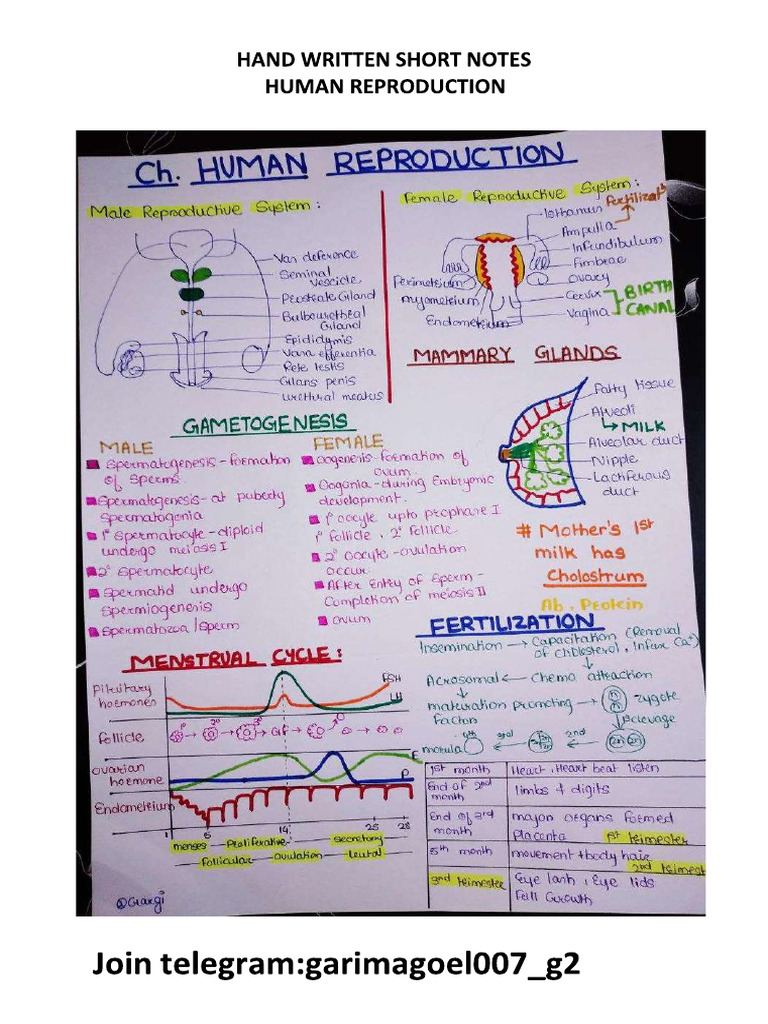 HAND WRITTEN SHORT NOTES
HUMAN REPRODUCTION
Ch. HUMAN REPRODUCTION
Male Reproductive System :
Van deference
Seminal
Vescicle
Prostrate Gland
Bulbourethral
Gland
Epididymis
Vasa efferentia
Rete testis
Glans penis
urethral meatus
Female Reproductive System :
Isthamus
Ampulla
Infundibulum
Fimbreae
Ovary
Cervix
Vagina
BIRTH
CANAL
Perimetrium
Myometrium
Endometrium
MAMMARY GLANDS
Fatty tissue
Alveoli
→ MILK
Alveolar duct
Nipple
Lactiferous
duct
# Mother's 1st
milk has
Cholostrum
Ab, Protein
GAMETOGENESIS
MALE
Spermatogenesis - formation
of Sperms
Spermatogenesis - at puberty
Spermatogonia
1° Spermatocyte - diploid
undergo meiosis I
2° Spermatocyte
Spermatid undergo
Spermiogenesis
Spermatozoa / Sperm
FEMALE
Oogenesis - formation of
ovum.
Oogonia - during Embryonic
development.
1° oocyte upto prophase I
1° follicle, 2° follicle
2° oocyte - ovulation
occur.
After Entry of Sperm -
Completion of meiosis II
ovum
FERTILIZATION
Insemination → Capacitation (Removal
of Cholsterol, Infux Ca+)
Acrosomal ← Chemo attraction
maturation promoting → zygote
factors
cleavage
2nd
3rd
morula
MENSTRUAL CYCLE :
Pituitary
hormones
FSH
LH
follicle
1°
2°
3°
GF
ovarian
hormone
E
P
Endometrium
1 5 14 25 28
menses Proliferative secretory
follicular ovulation leutal
1st month Heart, Heart beat listen
End of 2nd
month limbs & digits
End of 3rd
month major organs formed
Placenta 1st trimester
5th month movement + body hair
2nd trimest
3rd trimester Eye lash, Eye lids
Full Growth
@Gargi
Join telegram:garimagoel007_g2